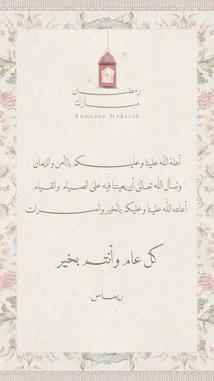 رمضان
مبارك
Ramadan Mubarak
أهلهُ الله علينا وعليكم بالأمن والإيمان
ونسأل الله تعالى أن يعيننا فيه على الصيام والقيام
أعاده الله علينا وعليكم بالخير والمسرات
كل عام وأنتم بخير
ريماس